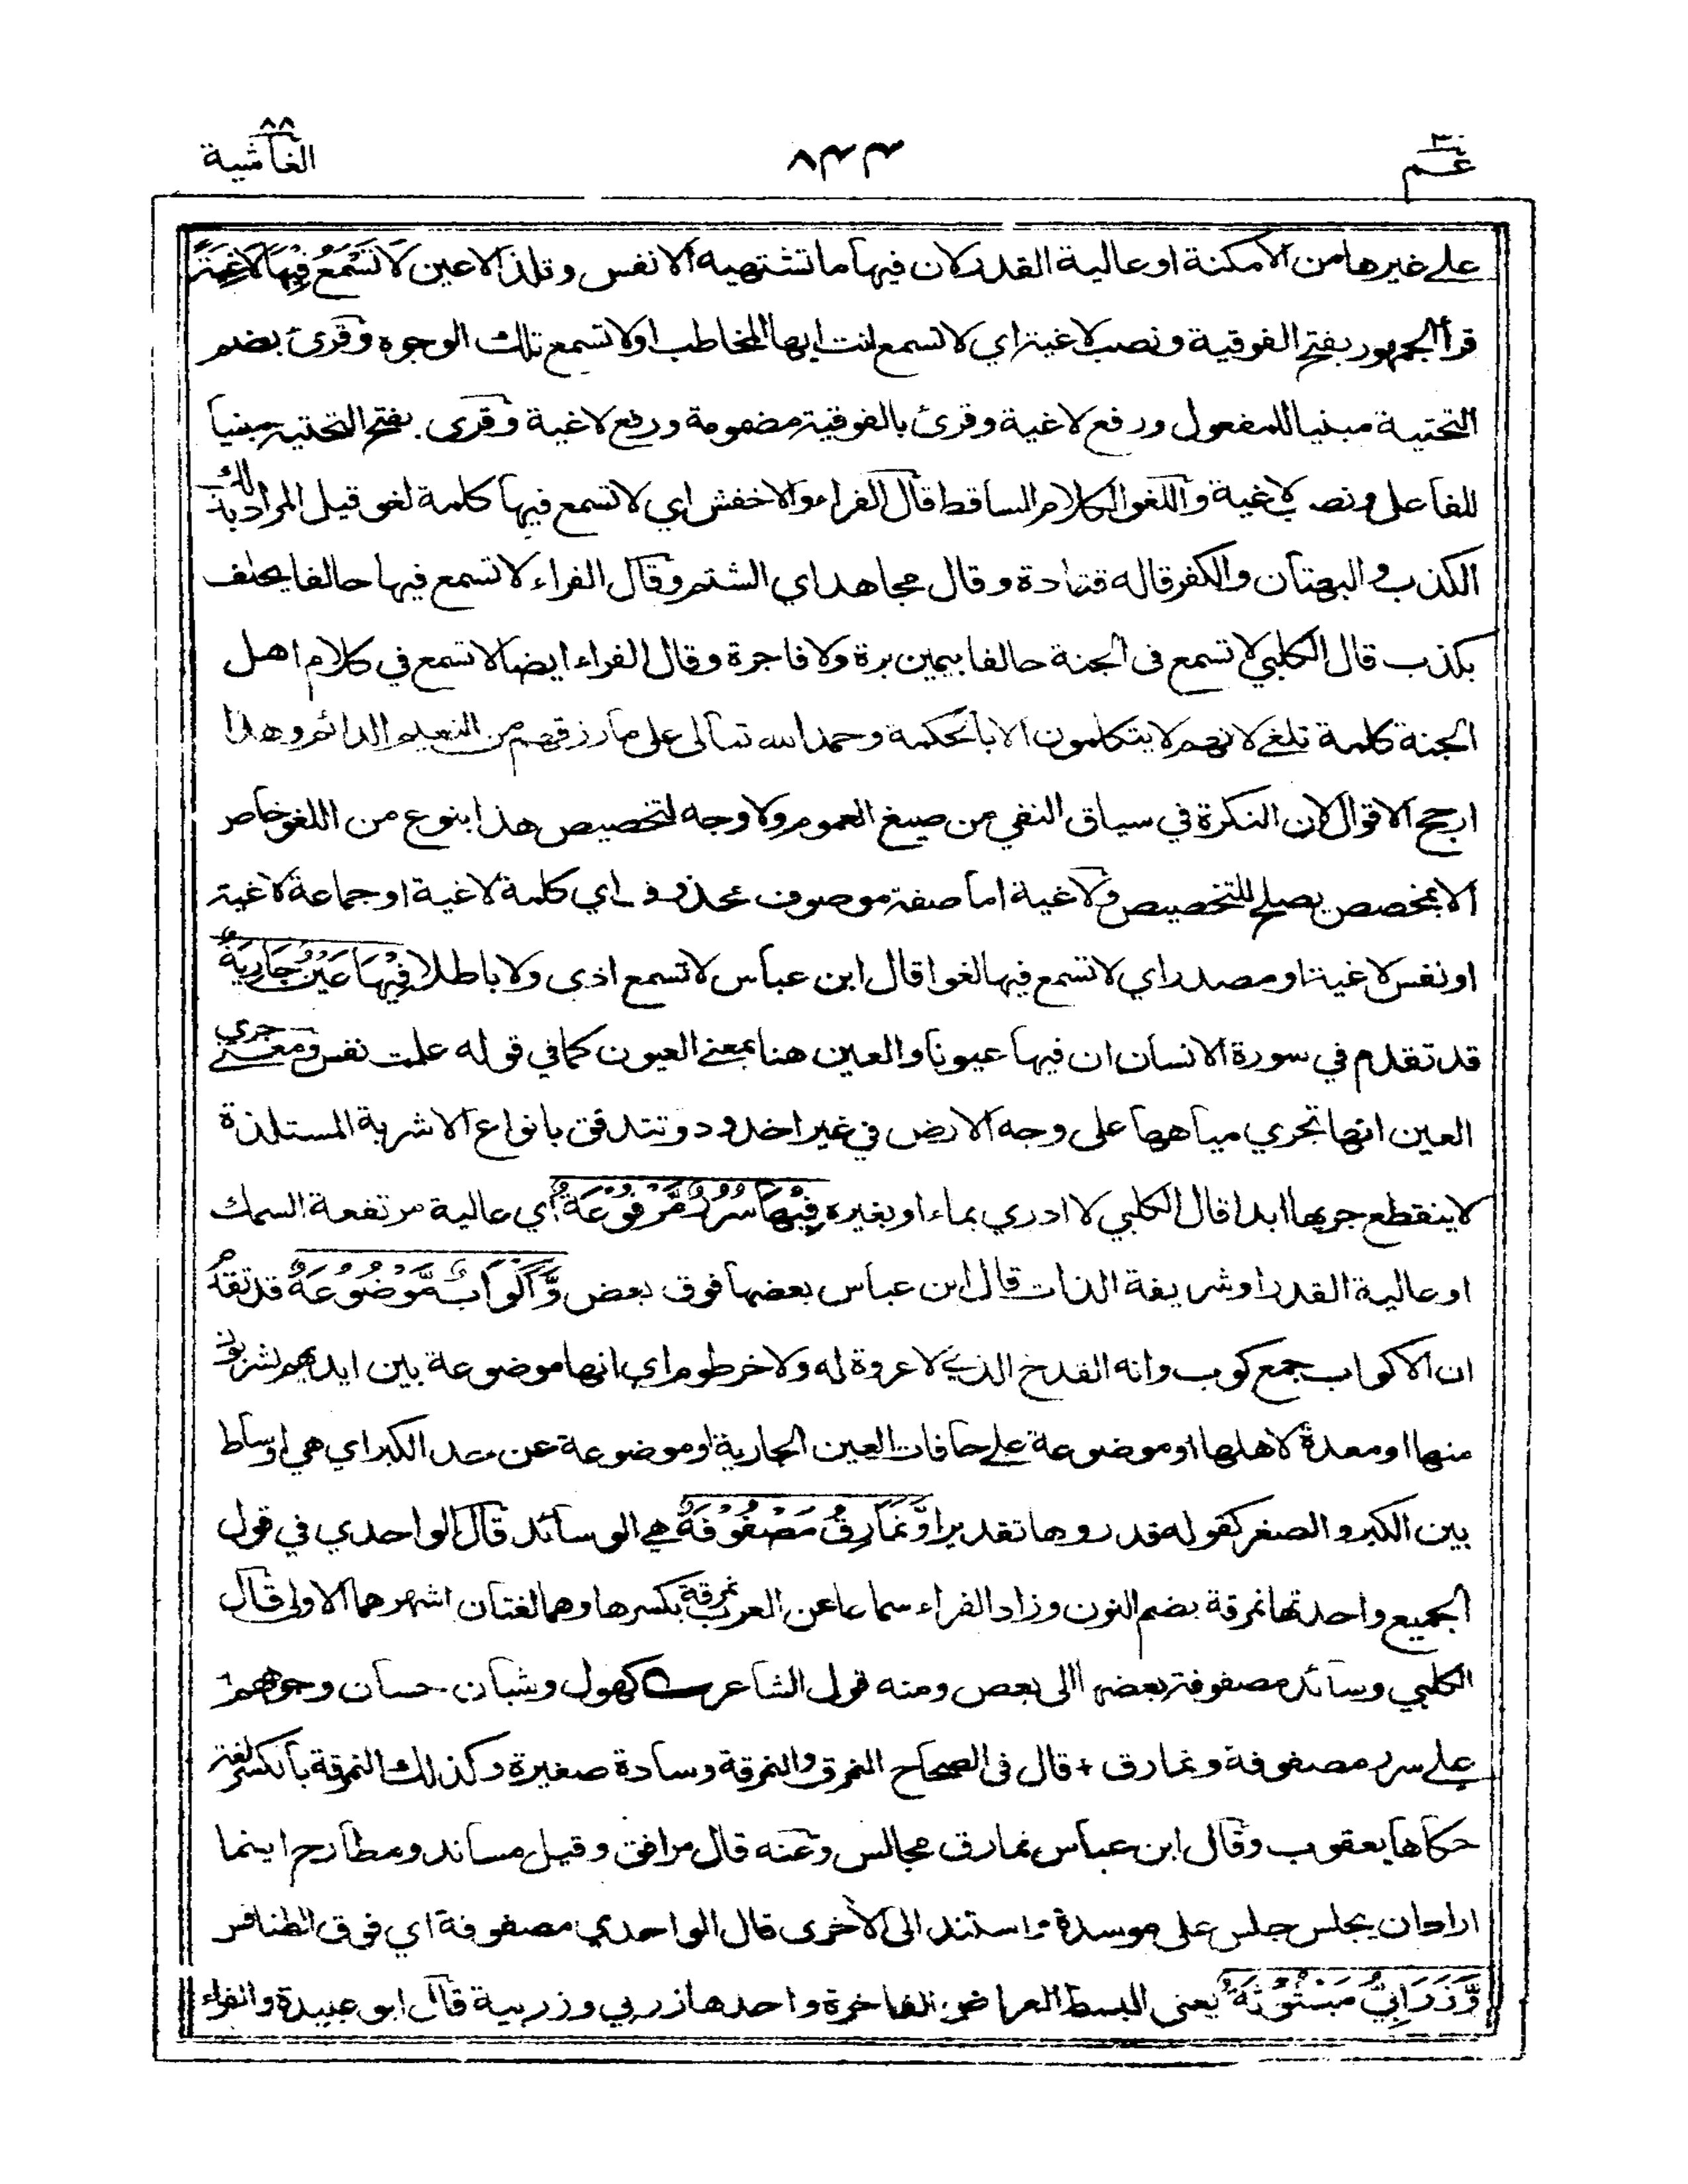 عم ٣٠
٤٤٧
الغاشية ٨٨
على غيرها من الامكنة او عالية القدر لان فيها ما تشتهيه الانفس وتلذ الاعين لَا تَسْمَعُ فِيْهَا لَاغِيَةً
قرأ الجمهور بفتح الفوقية ونصب لاغية اي لا تسمع انت ايها المخاطب او لا تسمع تلك الوجوه وقرئ بضم
التحتية مبنيا للمفعول ورفع لاغية وقرئ بالفوقية مضمومة ورفع لاغية وقرئ بفتح التحتية مبنيا
للفاعل ونصب لاغية واللغو الكلام الساقط قال الفراء والاخفش اي لا تسمع فيها كلمة لغو قيل المراد بذلك
الكذب والبهتان والكفر قاله قتادة وقال مجاهد اي الشتم وقال الفراء لا تسمع فيها حالفا يحلف
بكذب قال الكلبي لا تسمع في الجنة حالفا بيمين برة ولا فاجرة وقال الفراء ايضا لا تسمع في كلام اهل
الجنة كلمة تلغى لانهم لا يتكلمون الا بالحكمة وحمد الله تعالى على ما رزقهم من النعيم الدائم وهذا
ارجح الاقوال لان النكرة في سياق النفي من صيغ العموم ولا وجه لتخصيص هذا بنوع من اللغو خاص
الا بمخصص يصلح للتخصيص ولاغية اما صفة موصوف محذوف اي كلمة لاغية او جماعة لاغية
او نفس لاغية او مصدر اي لا تسمع فيها لغوا قال ابن عباس لا تسمع اذى ولا باطلا فِيْهَا عَيْنٌ جَارِيَةٌ
قد تقدم في سورة الانسان ان فيها عيونا والعين هنا بمعنى العيون كما في قوله علمت نفس ومعنى جري
العين انها تجري مياهها على وجه الارض في غير اخدود وتتدفق بانواع الاشربة المستلذة
لا ينقطع جريها ابدا قال الكلبي لا ادري بماء او بغيره فِيْهَا سُرُرٌ مَّرْفُوْعَةٌ اي عالية مرتفعة السمك
او عالية القدر او شريفة الذات قال ابن عباس بعضها فوق بعض وَّاَكْوَابٌ مَّوْضُوْعَةٌ قد تقدم
ان الاكواب جمع كوب وانه القدح الذي لا عروة له ولا خرطوم اي انها موضوعة بين ايديهم يشربون
منها او معدة لاهلها او موضوعة على حافات العين الجارية او موضوعة عن حد الكبر اي هي اوساط
بين الكبر والصغر كقوله قدروها تقديرا وَّنَمَارِقُ مَصْفُوْفَةٌ هي الوسائد قال الواحدي في قول
الجميع واحدتها نمرقة بضم النون وزاد الفراء سماعا عن العرب نمرقة بكسرها وهما لغتان اشهرهما الاولى قال
الكلبي وسائد مصفوفة بعضها الى بعض ومنه قول الشاعر كهول وشبان حسان وجوههم
على سرر مصفوفة ونمارق + قال في الصحاح النمرق والنمرقة وسادة صغيرة وكذلك النمرقة بالكسر لغة
حكاها يعقوب وقال ابن عباس نمارق مجالس وعنه قال مرافق وقيل مساند ومطارح اينما
اراد ان يجلس جلس على موسدة واستند الى الاخرى قال الواحدي مصفوفة اي فوق الطنافس
وَّزَرَابِيُّ مَبْثُوْثَةٌ يعني البسط العراض الفاخرة واحدها زربي وزربية قال ابو عبيدة والفراء